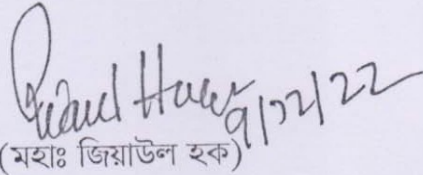 Ziaul Huq 9/12/22
(মহাঃ জিয়াউল হক)